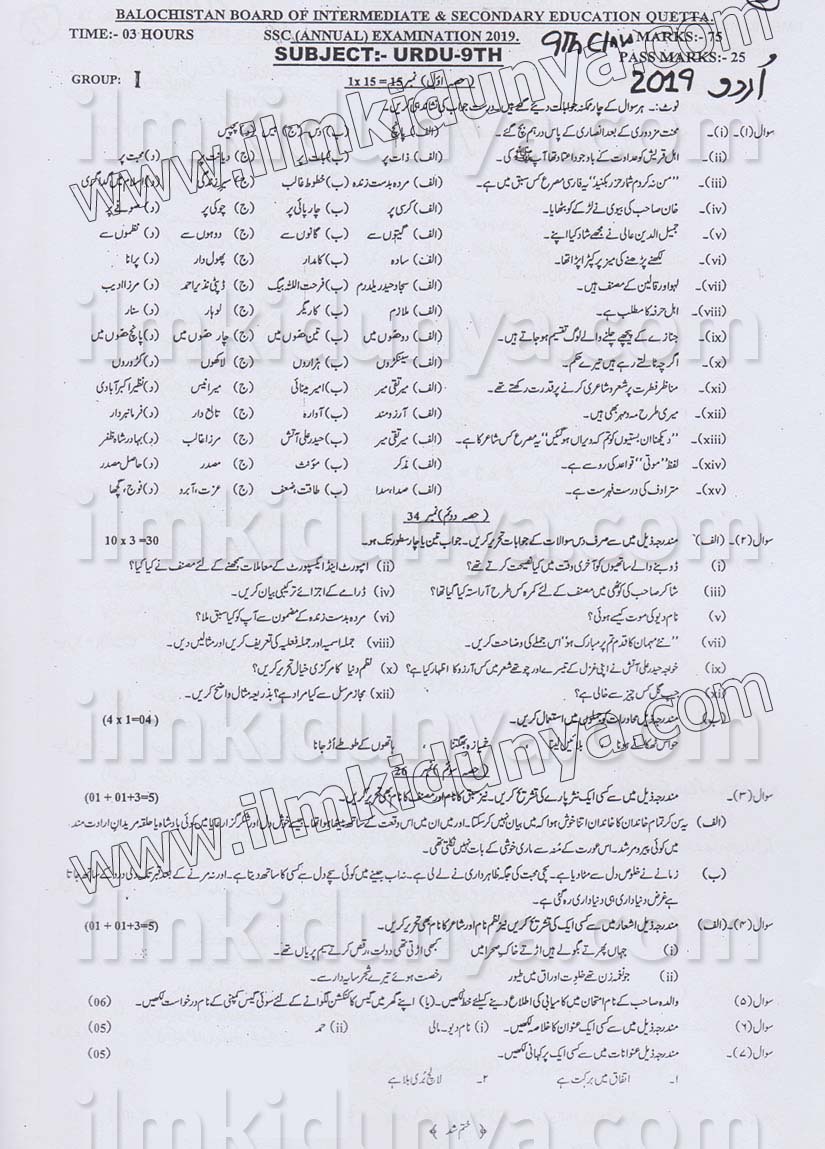 BALOCHISTAN BOARD OF INTERMEDIATE & SECONDARY EDUCATION QUETTA.
TIME:- 03 HOURS SSC (ANNUAL) EXAMINATION 2019. 9Th Class MARKS:- 75
SUBJECT:- URDU-9TH PASS MARKS:- 25
GROUP: I (حصہ اوّل) نمبر 15 = 15 x 1 اُردو 2019
نوٹ:۔ ہر سوال کے چار ممکنہ جوابات دیئے گئے ہیں۔ درست جواب کی نشاندہی کریں۔
سوال (۱)۔ (i)۔ محنت مزدوری کے بعد انصاری کے پاس درہم بچ گئے۔ (الف) پانچ (ب) دس (ج) بیس (د) پچیس
(ii)۔ اہل قریش کو عداوت کے باوجود اعتماد تھا آپ ﷺ کی۔ (الف) ذات پر (ب) بات پر (ج) دیانت پر (د) محبت پر
(iii)۔ ”من نہ کردم شما حذر بکنید“ یہ فارسی مصرع کس سبق میں ہے۔ (الف) مردہ بدست زندہ (ب) خطوط غالب (ج) سیر زندگی (د) اسلام میں گداگری
(iv)۔ خان صاحب کی بیوی نے لڑکے کو بٹھایا۔ (الف) کرسی پر (ب) چارپائی پر (ج) چوکی پر (د) صوفے پر
(v)۔ جمیل الدین عالی نے مجھے شاد کیا اپنے۔ (الف) گیتوں سے (ب) گانوں سے (ج) دوہوں سے (د) نظموں سے
(vi)۔ لکھنے پڑھنے کی میز پر کپڑا پڑا تھا۔ (الف) سادہ (ب) کامدار (ج) پھول دار (د) پرانا
(vii)۔ لہو اور قالین کے مصنف ہیں۔ (الف) سجاد حیدر یلدرم (ب) فرحت اللہ بیگ (ج) ڈپٹی نذیر احمد (د) مرزا ادیب
(viii)۔ اہل حرفہ کا مطلب ہے۔ (الف) ملازم (ب) کاریگر (ج) لوہار (د) سنار
(ix)۔ جنازے کے پیچھے چلنے والے لوگ تقسیم ہو جاتے ہیں۔ (الف) دو حصوں میں (ب) تین حصوں میں (ج) چار حصوں میں (د) پانچ حصوں میں
(x)۔ اگرچہ ٹلتے رہے ہیں تیرے حکم۔ (الف) سینکڑوں (ب) ہزاروں (ج) لاکھوں (د) کروڑوں
(xi)۔ مناظر فطرت پر شعر و شاعری کرنے پر قدرت رکھتے تھے۔ (الف) میر تقی میر (ب) امیر مینائی (ج) میر انیس (د) نظیر اکبر آبادی
(xii)۔ میری طرح مہ و مہر بھی ہیں۔ (الف) آرزو مند (ب) آوارہ (ج) تابع دار (د) فرمانبردار
(xiii)۔ ”دیکھنا ان بستیوں کو تم کہ ویراں ہو گئیں“ یہ مصرع کس شاعر کا ہے۔ (الف) میر تقی میر (ب) حیدر علی آتش (ج) مرزا غالب (د) بہادر شاہ ظفر
(xiv)۔ لفظ ”موتی“ قواعد کی رو سے ہے۔ (الف) مذکر (ب) مؤنث (ج) مصدر (د) حاصل مصدر
(xv)۔ مترادف کی درست فہرست ہے۔ (الف) صدا، سدا (ب) طاقت، ضعف (ج) عزت، آبرو (د) فوج، گچھا
(حصہ دوئم) نمبر 34
سوال (۲)۔ (الف) مندرجہ ذیل میں سے صرف دس سوالات کے جوابات تحریر کریں۔ جواب تین یا چار سطور تک ہو۔ 10 x 3 =30
(i) ڈوبنے والے ساتھیوں کو آخری وقت میں کیا نصیحت کرتے تھے؟ (ii) امپورٹ اینڈ ایکسپورٹ کے معاملات سمجھنے کے لئے مصنف نے کیا کیا؟
(iii) شاکر صاحب کی کوٹھی میں مصنف کے لئے کمرہ کس طرح آراستہ کیا گیا تھا؟ (iv) ڈرامے کے اجزائے ترکیبی بیان کریں۔
(v) نام دیو کی موت کیسے ہوئی؟ (vi) مردہ بدست زندہ کے مضمون سے آپ کو کیا سبق ملا؟
(vii) ”نئے مہمان کا قدم تم پر مبارک ہو“ اس جملے کی وضاحت کریں۔ (viii) جملہ اسمیہ اور جملہ فعلیہ کی تعریف کریں اور مثالیں دیں۔
(ix) خواجہ حیدر علی آتش نے اپنی غزل کے تیسرے اور چوتھے شعر میں کس آرزو کا اظہار کیا ہے؟ (x) نظم دنیا کا مرکزی خیال تحریر کریں؟
(xi) جیب گل کس چیز سے خالی ہے؟ (xii) مجاز مرسل سے کیا مراد ہے؟ بذریعہ مثال واضح کریں۔
(ب)۔ مندرجہ ذیل محاورات کو جملوں میں استعمال کریں۔ (4 x 1=04 )
حواس ٹھکانے ہونا، بلائیں لینا، خمیازہ بھگتنا، ہاتھوں کے طوطے اُڑ جانا
(حصہ سوئم) نمبر 26
سوال (۳)۔ مندرجہ ذیل میں سے کسی ایک نثر پارے کی تشریح کریں۔ نیز سبق کا نام اور مصنف کا نام بھی تحریر کریں۔ (01 + 01+3=5)
(الف) یہ سن کر تمام خاندان کا خاندان اتنا خوش ہوا کہ میں بیان نہیں کر سکتا۔ اور میں ان میں اس وقعت کے ساتھ بیٹھا ہوا تھا۔ جیسے خوش دل اور شکر گزار رعایا میں کوئی بادشاہ یا حلقہ مریدان ارادت مند
میں کوئی پیر و مرشد۔ اس عورت کے مُنہ سے ماری خوشی کے بات نہیں نکلتی تھی۔
(ب) زمانے نے خلوص دل سے مٹا دیا ہے۔ سچی محبت کی جگہ ظاہر داری نے لے لی ہے۔ نہ اب جینے میں کوئی سچے دل سے کسی کا ساتھ دیتا ہے۔ اور نہ مرنے کے بعد قبر تک دلی درد کے ساتھ جاتا
ہے غرض دنیا داری ہی دنیا داری رہ گئی ہے۔
سوال (۴)۔ (الف) مندرجہ ذیل اشعار میں سے کسی ایک کی تشریح کریں نیز نظم نام اور شاعر کا نام بھی تحریر کریں۔ (01 + 01+3=5)
(i) جہاں پھرتے بگولے ہیں اڑتے خاک صحرا میں کبھی اڑتی تھی دولت، رقص کرتے سیم پریاں تھے۔
(ii) جو نغمہ زن تھے خلوت اوراق میں طیور رخصت ہوئے تیرے شجر سایہ دار سے۔
سوال (۵) والدہ صاحب کے نام امتحان میں کامیابی کی اطلاع دینے کیلئے خط لکھیں۔ (یا) اپنے گھر میں گیس کا کنکشن لگوانے کے لئے سوئی گیس کمپنی کے نام درخواست لکھیں۔ (06)
سوال (۶) مندرجہ ذیل میں سے کسی ایک عنوان کا خلاصہ لکھیں۔ (i) نام دیو۔ مالی (ii) حمد (05)
سوال (۷) مندرجہ ذیل عنوانات میں سے کسی ایک پر کہانی لکھیں۔ (05)
۱۔ اتفاق میں برکت ہے ۲۔ لالچ بُری بلا ہے
﴿ ختم شد ﴾
www.ilmkidunya.com
www.ilmkidunya.com
ilmkidunya.com
ilmkidunya.com
ilmkidunya.com
ilmkidunya.com
ilmkidunya.com
ilmkidunya.com
ilmkidunya.com